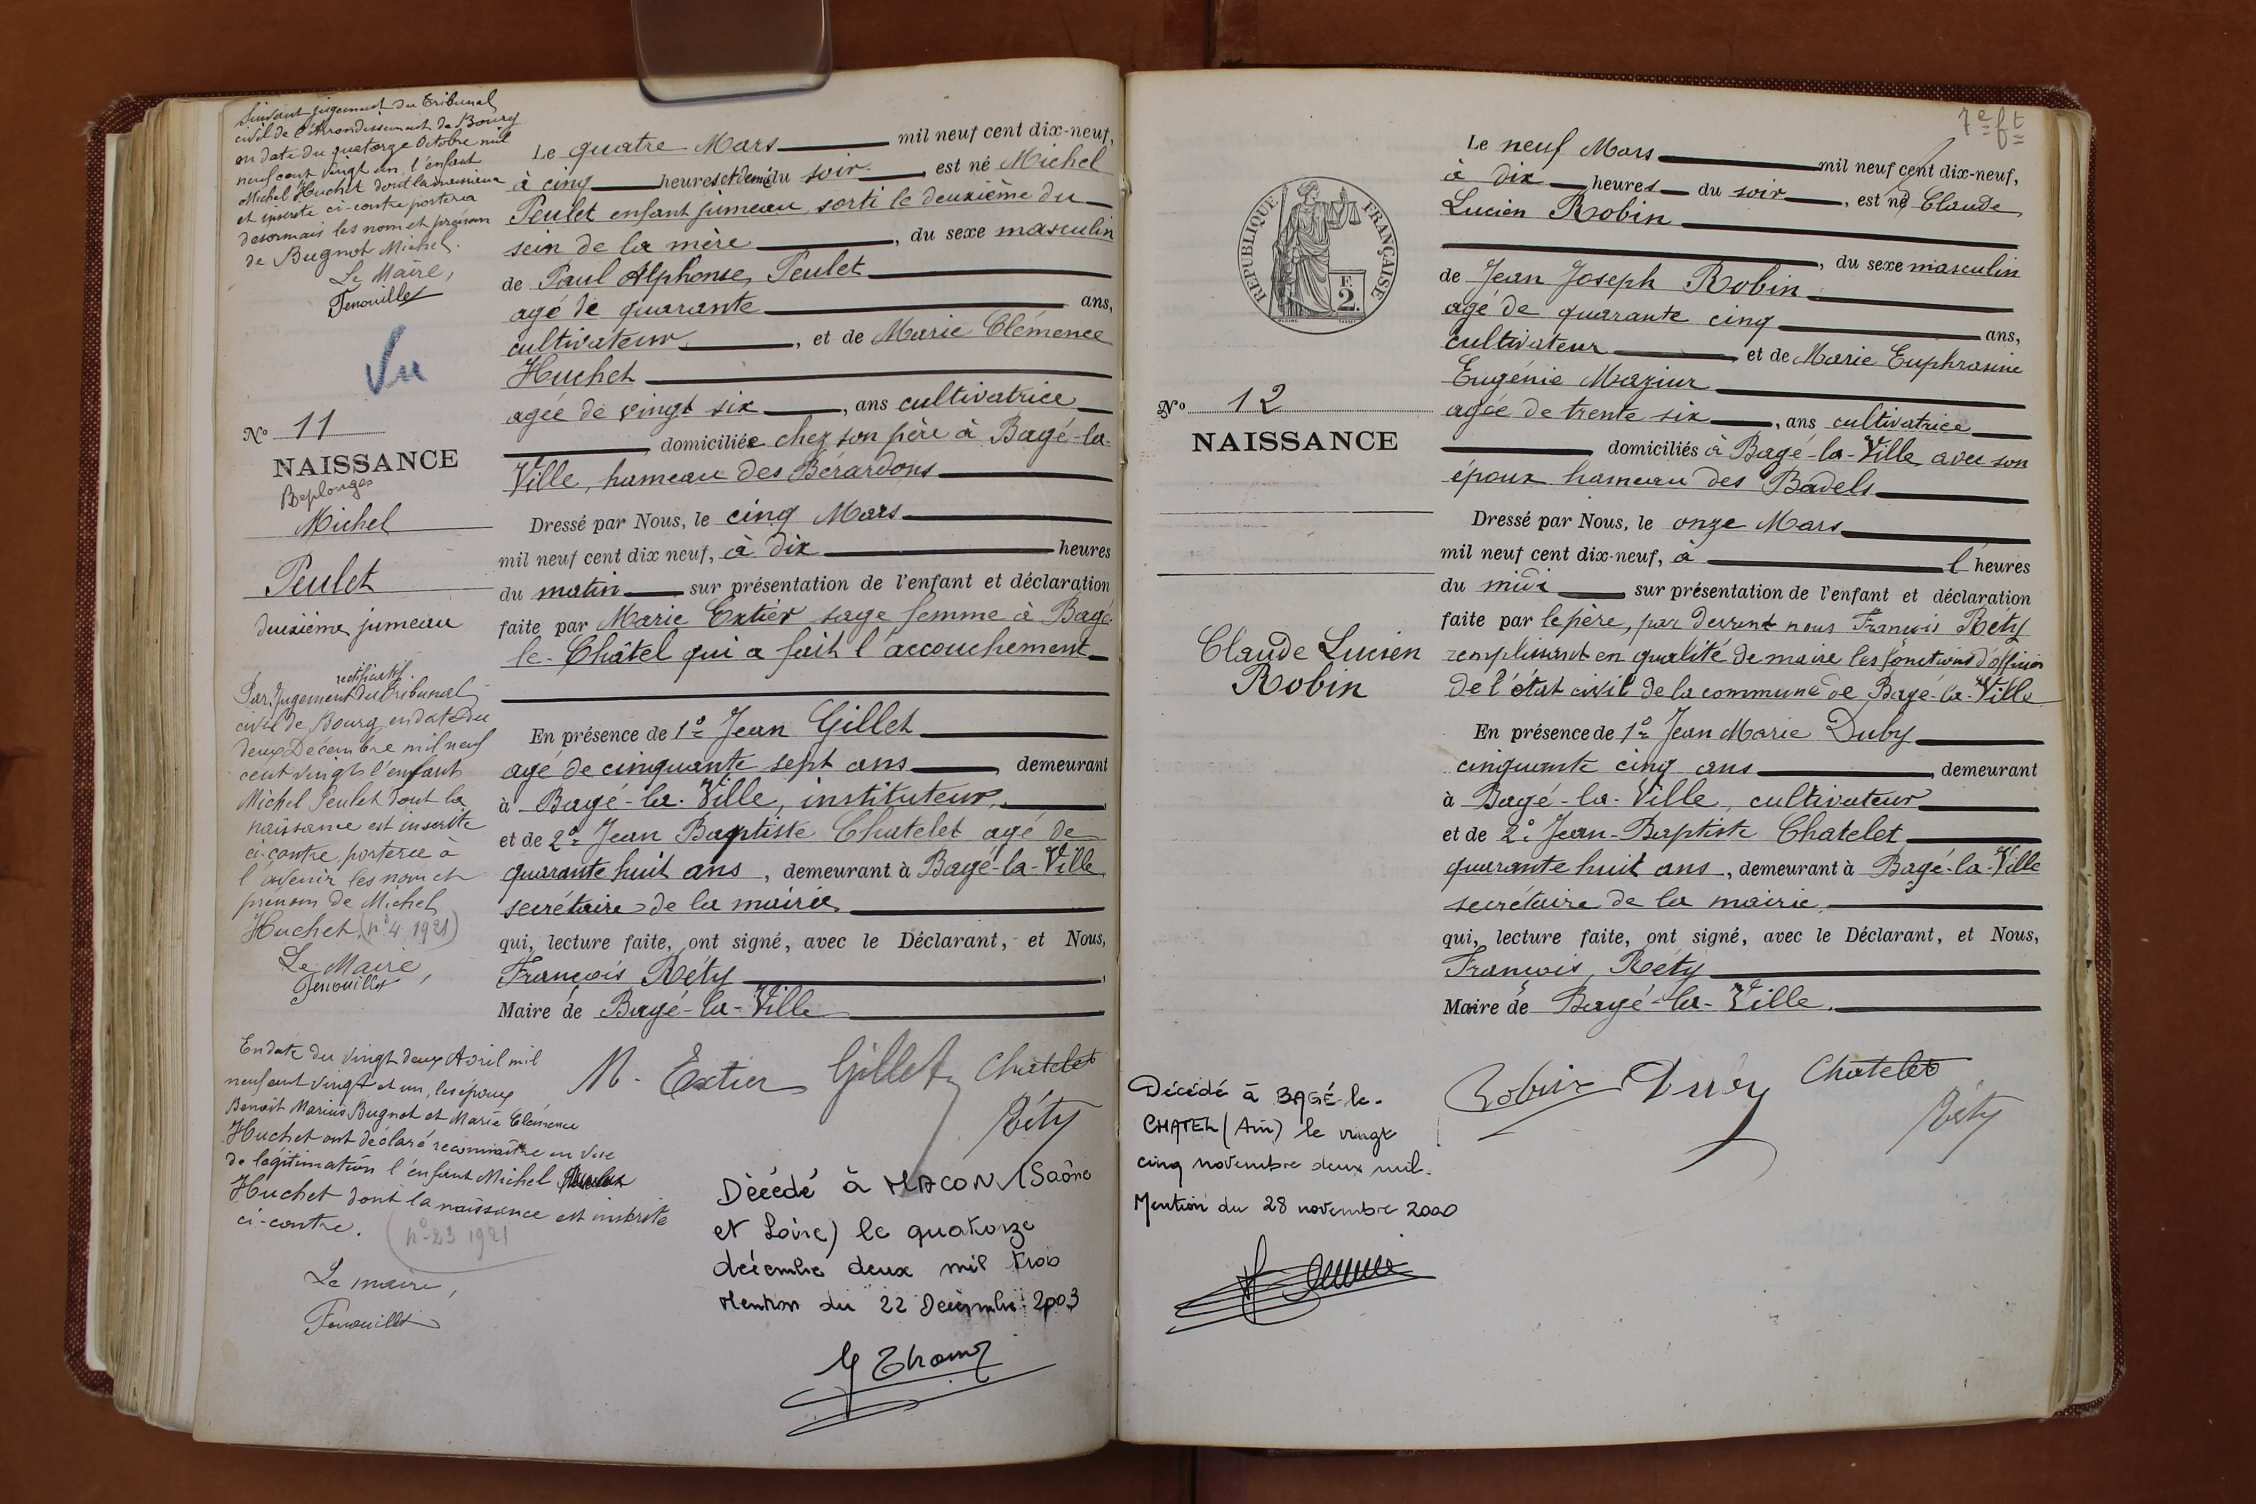 Suivant jugement du Tribunal
civil de l'Arrondissement de Bourg
en date du quatorze Octobre mil
neuf cent vingt un, l'enfant
Michel Huchet dont la naissance
et inscrite ci-contre portera
desormais les nom et prénom
de Bugnot Michel.
Le Maire,
Fenouillet
Vu
N° 11
NAISSANCE
Replonges
Michel
Peulet
deuxième jumeau
rectificatif
Par Jugement du Tribunal
civil de Bourg en date du
deux Décembre mil neuf
cent vingt l'enfant
Michel Peulet dont la
naissance est inscrite
ci-contre, portera à
l'avenir les nom et
prénom de Michel
Huchet (n° 4 1921)
Le Maire,
Fenouillet
En date du vingt deux Avril mil
neuf cent vingt et un, les époux
Benoit Marius Bugnot et Marie Clémence
Huchet ont déclaré reconnaitre en vue
de légitimation l'enfant Michel
Huchet dont la naissance est inscrite
ci-contre.
(n° 23 1921
Le maire,
Fenouillet
Le quatre Mars mil neuf cent dix-neuf,
à cinq heures et demie du soir, est né Michel
Peulet enfant jumeau, sorti le deuxième du
sein de la mère, du sexe masculin
de Paul Alphonse Peulet
agé de quarante ans,
cultivateur, et de Marie Clémence
Huchet
agée de vingt six, ans cultivatrice
domiciliée chez son père à Bagé-la-
Ville, hameau des Bérardons
Dressé par Nous, le cinq Mars
mil neuf cent dix neuf, à dix heures
du matin sur présentation de l'enfant et déclaration
faite par Marie Extier sage femme à Bagé-
le-Châtel qui a fait l'accouchement
En présence de 1° Jean Gillet
agé de cinquante sept ans, demeurant
à Bagé-la-Ville, instituteur,
et de 2° Jean Baptiste Chatelet agé de
quarante huit ans, demeurant à Bagé-la-Ville
secrétaire de la mairie
qui, lecture faite, ont signé, avec le Déclarant, et Nous,
François Réty,
Maire de Bagé-la-Ville
M. Extier Gillet Chatelet
Réty
Décédé à MACON (Saône
et Loire) le quatorze
décembre deux mil trois
Mention du 22 Décembre 2003
7e ft
REPUBLIQUE FRANÇAISE
F.
2.
N° 12
NAISSANCE
Claude Lucien
Robin
Le neuf Mars mil neuf cent dix-neuf,
à dix heures du soir, est né Claude
Lucien Robin
, du sexe masculin
de Jean Joseph Robin
agé de quarante cinq ans,
cultivateur et de Marie Euphrasine
Eugénie Maziur
agée de trente six, ans cultivatrice
domiciliés à Bagé-la-Ville avec son
époux hameau des Badels
Dressé par Nous, le onze Mars
mil neuf cent dix-neuf, à l'heures
du midi sur présentation de l'enfant et déclaration
faite par le père, par devant nous François Réty
remplissant en qualité de maire les fonctions d'officier
de l'état civil de la commune de Bagé-la-Ville
En présence de 1° Jean Marie Duby
cinquante cinq ans, demeurant
à Bagé-la-Ville, cultivateur
et de 2° Jean-Baptiste Chatelet
quarante huit ans, demeurant à Bagé-la-Ville
secrétaire de la mairie
qui, lecture faite, ont signé, avec le Déclarant, et Nous,
François Réty
Maire de Bagé-la-Ville.
Robin Duby Chatelet
Réty
Décédé à BAGÉ-le-
CHATEL (Ain) le vingt
cinq novembre deux mil.
Mention du 28 novembre 2000